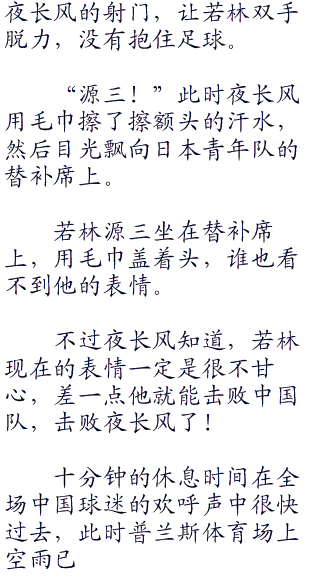 夜长风的射门，让若林双手
脱力，没有抱住足球。
“源三！”此时夜长风
用毛巾擦了擦额头的汗水，
然后目光飘向日本青年队的
替补席上。
若林源三坐在替补席
上，用毛巾盖着头，谁也看
不到他的表情。
不过夜长风知道，若林
现在的表情一定是很不甘
心，差一点他就能击败中国
队，击败夜长风了！
十分钟的休息时间在全
场中国球迷的欢呼声中很快
过去，此时普兰斯体育场上
空雨已